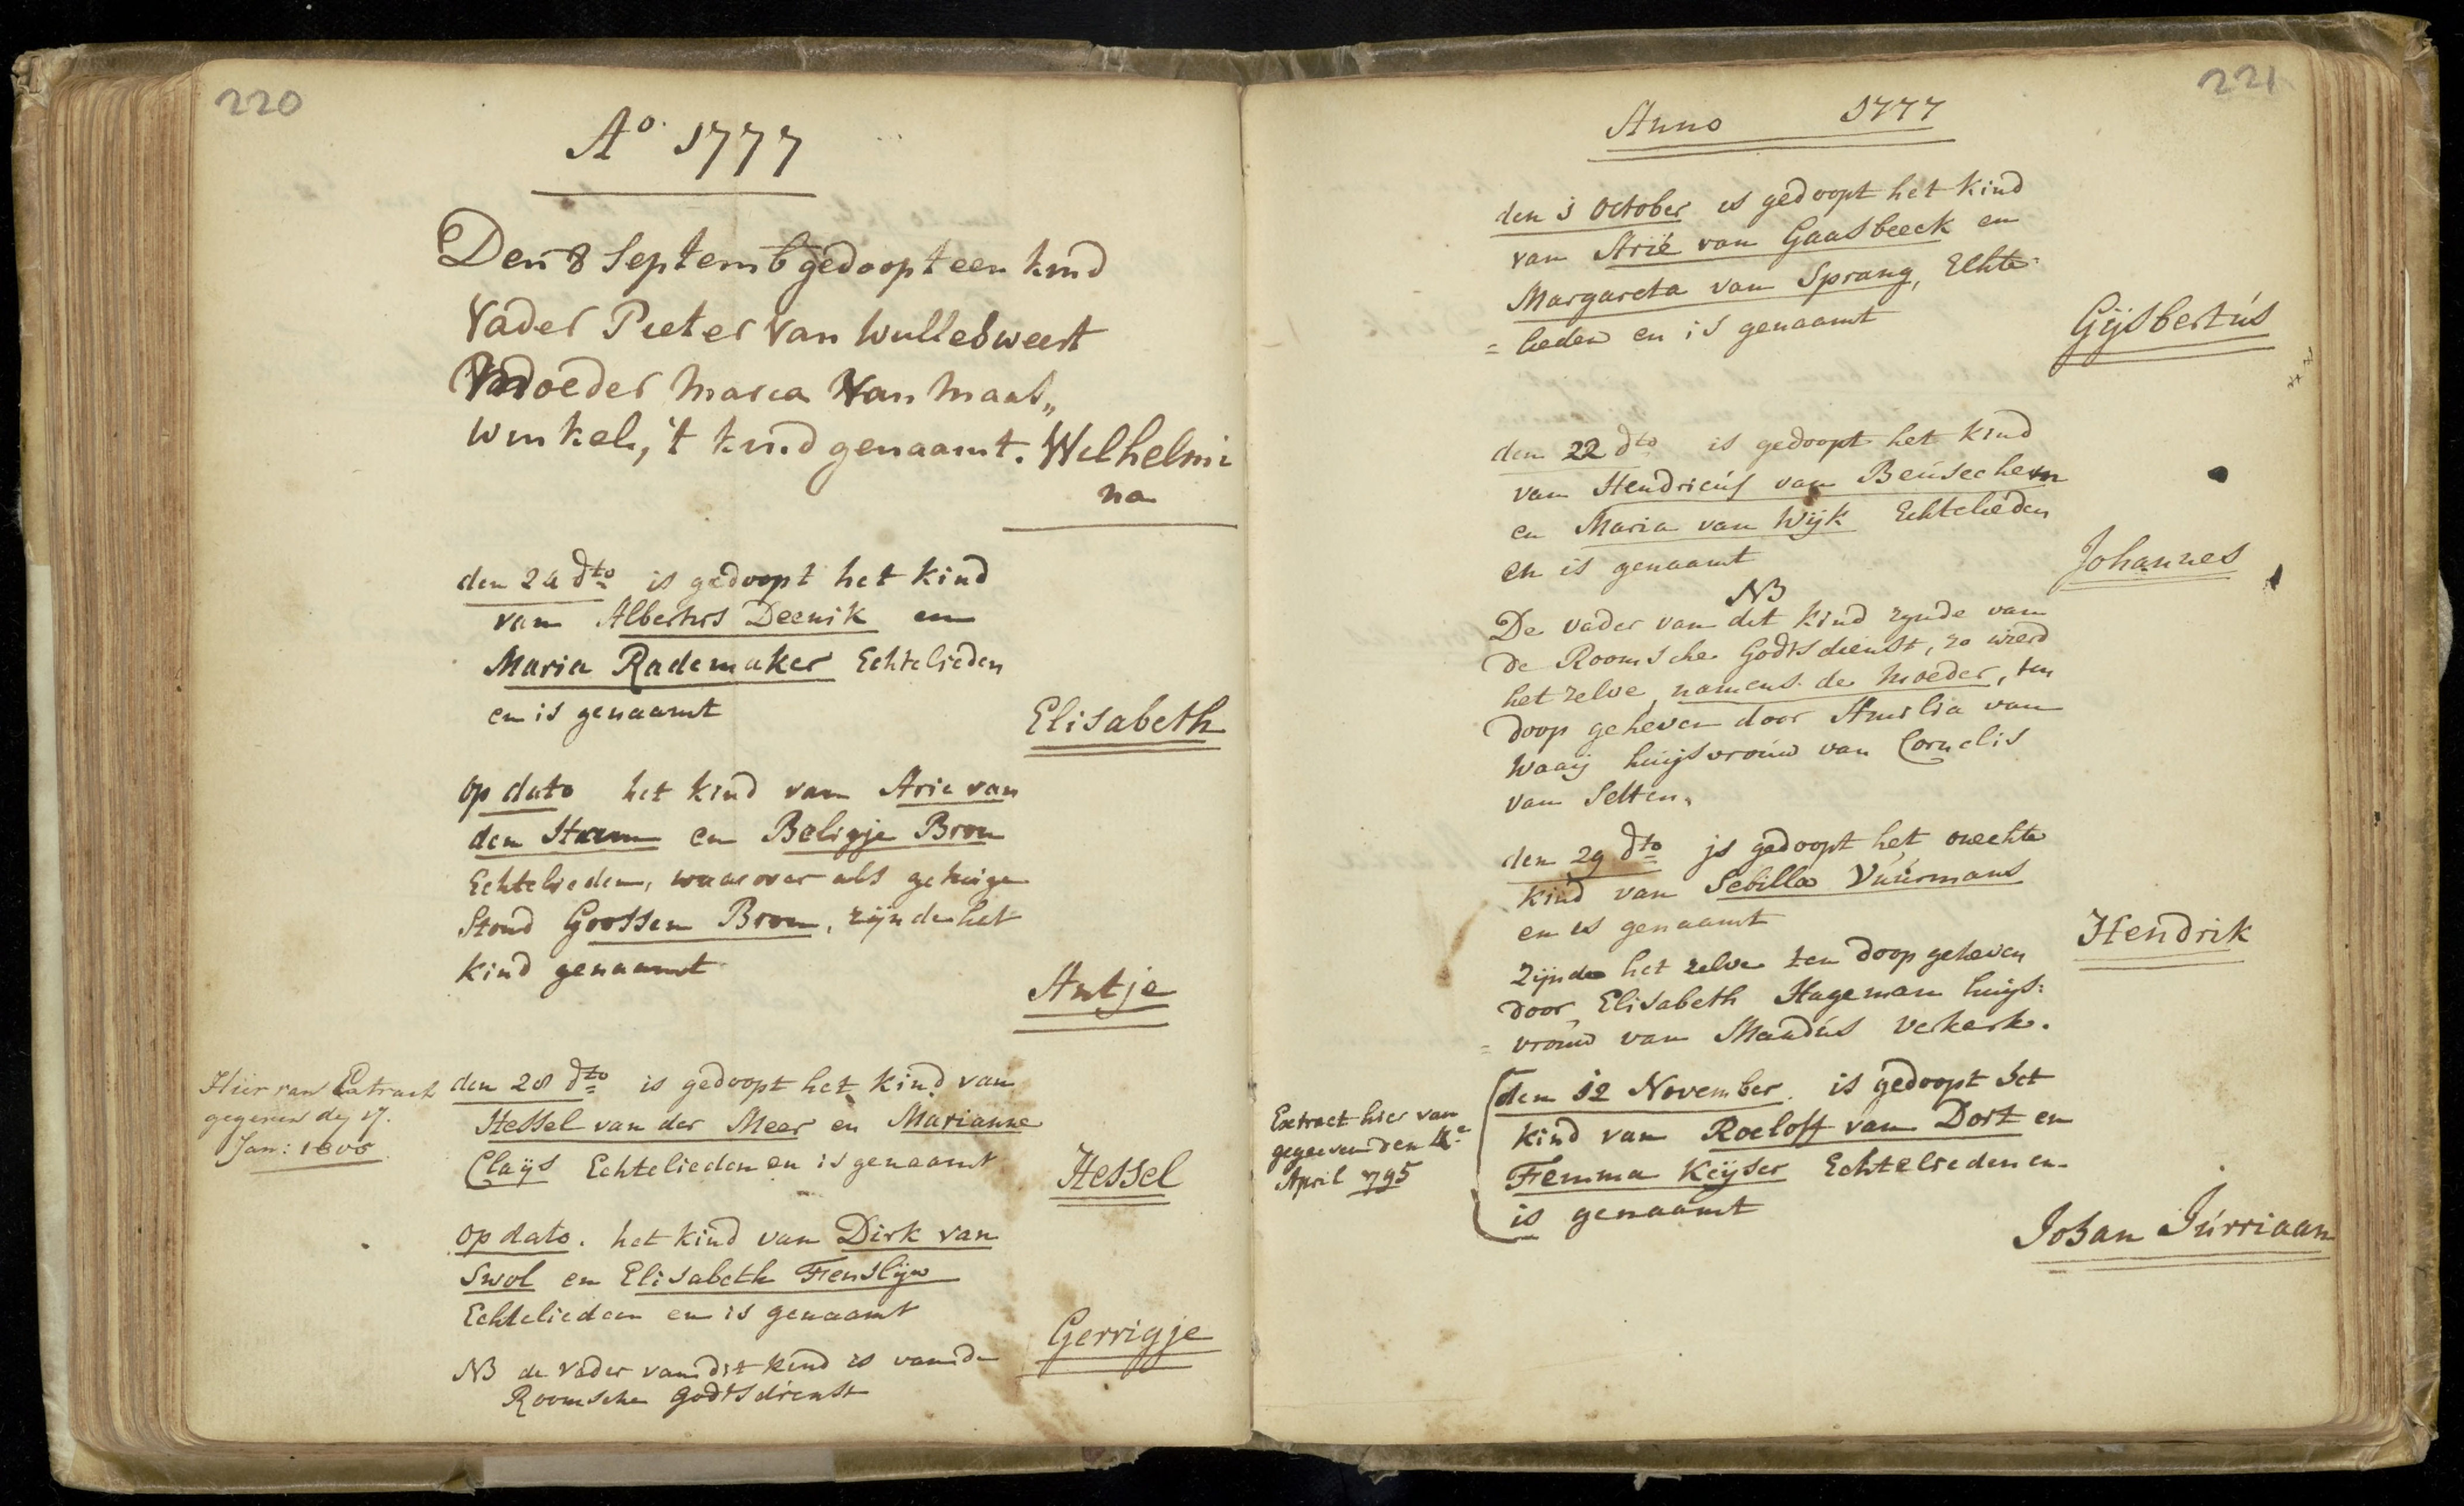 220
A° 1777
Den 8 Septemb gedoopt een kind
Vader Pieter Van Wullesweert
Moeder Maria Van Maas„
winkel, 't kind genaamt. Wilhelmi
na
den 24 dto is gedoopt het kind
van Albertus Deenik en
Maria Rademaker Echtelieden
en is genaamt
Elisabeth
op dato het kind van Arie van
den Ham en Beligje Brou
Echtelieden, waar over als getuige
Stond Goossen Brou, zijnde het
kind genaamt
Antje
Hier van Extract
gegeven dej 17.
Jan: 1806
den 28 dto is gedoopt het kind van
Hessel van der Meer en Marianne
Claijs Echtelieden en is genaamt
Hessel
op dato. het kind van Dirk van
Swol en Elisabeth Fienslijn
Echtelieden en is genaamt
Gerrigje
NB de vader van dit kind is van de
Roomsche Godtsdienst
221
Anno 1777
den 1 October is gedoopt het kind
van Arie van Gaasbeeck en
Margareta van Sprang, Echte=
= lieden en is genaamt
Gijsbertus
den 22 dto is gedoopt het kind
van Hendricus van Beusechem
en Maria van Wijk Echtelieden
en is genaamt
Johannes
NB
De vader van dit kind zynde van
de Roomsche Godtsdienst, zo wierd
het zelve, namens de moeder, ten
doop geheven door Amilia van
Waaij huijsvrouw van Cornelis
van Selten.
den 29 dto is gedoopt het onechte
kind van Sebilla Vuurmans
en is genaamt
Hendrik
Zijnde het zelve ten doop geheven
door Elisabeth Hageman huijs=
= vrouw van Maudus Verkerk.
Extract hier van
gegeeven den 4e
April 795
den 12 November. is gedoopt het
kind van Roeloff van Dort en
Femma Keijser Echtelieden en
is genaamt
Johan Jurriaan